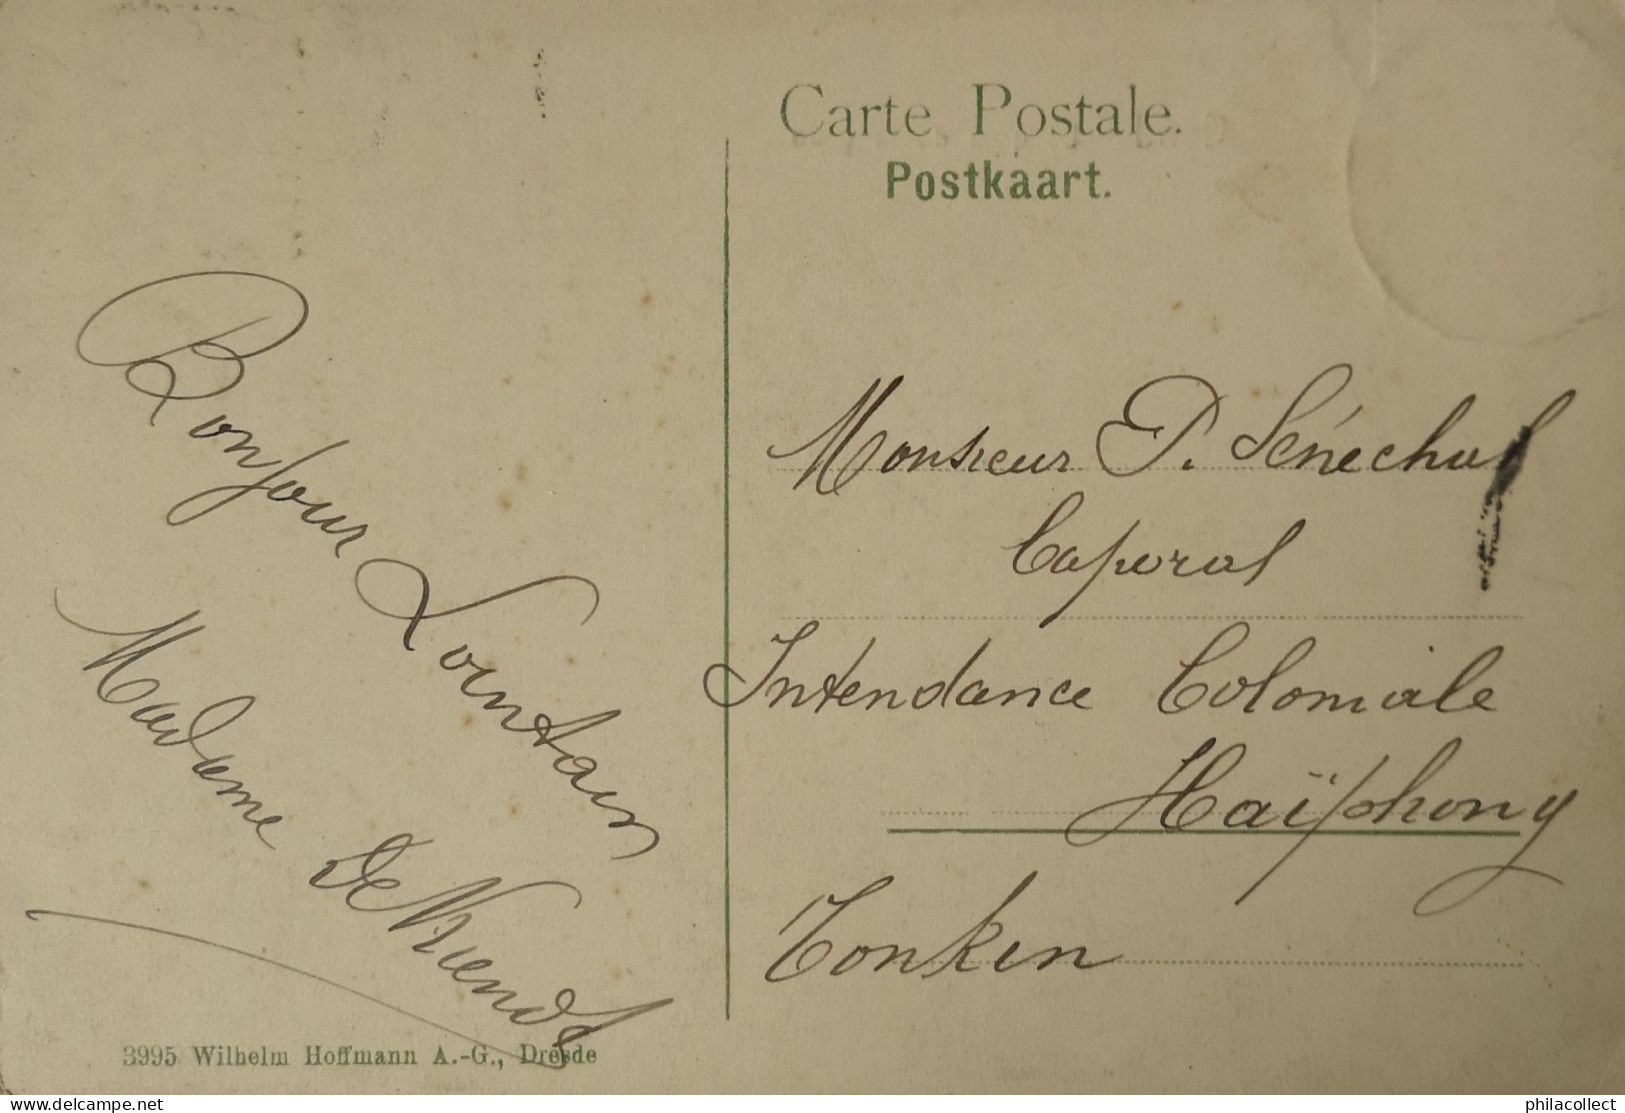 Carte Postale.
Postkaart.
Bonjour Lointain
Madame De
Monsieur P. Sénéchal
Caporal
Intendance Coloniale
Haïphong
Tonkin
3995 Wilhelm Hoffmann A.-G., Dresde
www.delcampe.net
philacollect